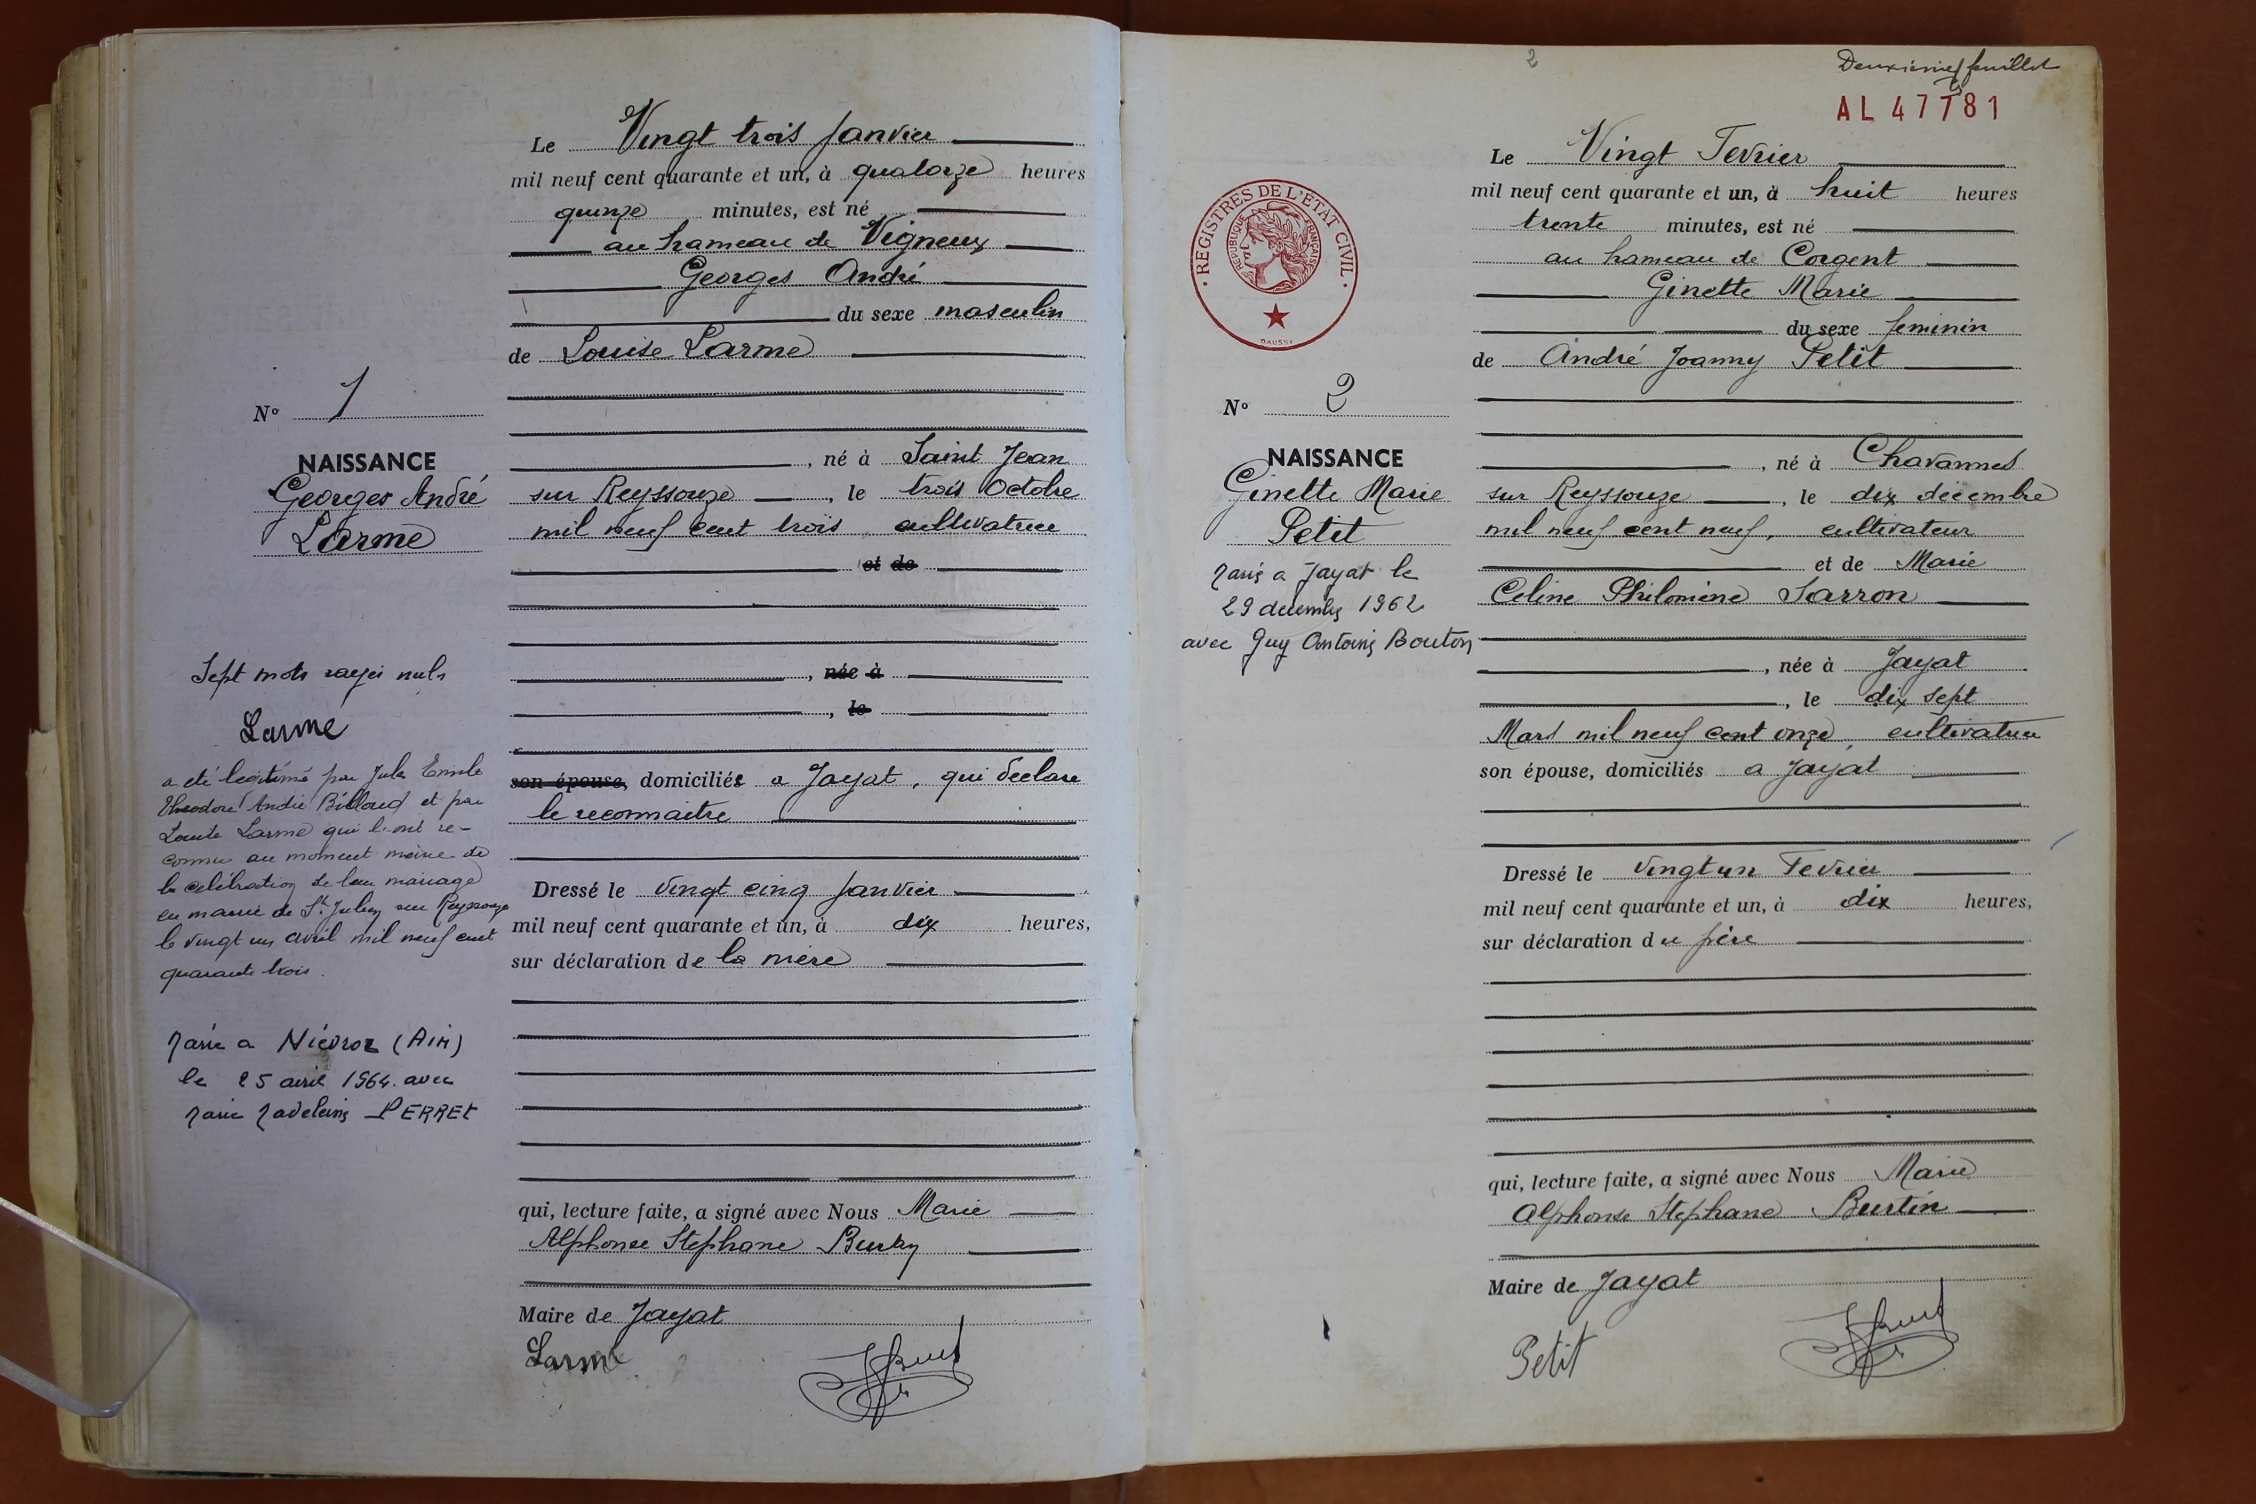 Le Vingt trois Janvier
mil neuf cent quarante et un, à quatorze heures
quinze minutes, est né
au hameau de Vigneux
Georges André
du sexe masculin
de Louise Larme
N° 1
NAISSANCE
Georges André
Larme
, né à Saint Jean
sur Reyssouze , le trois Octobre
mil neuf cent trois, cultivatrice
et de
Sept mots rayés nuls
Larme
, née à
, le
a été légitimé par Jules Emile
Théodore André Billoud et par
Louise Larme qui l'ont re-
connu au moment même de
la célébration de leur mariage
en mairie de St Julien sur Reyssouze
le vingt un avril mil neuf cent
quarante trois.
Marié a Niévroz (Ain)
le 25 avril 1964 avec
Marie Madeleine PERRET
son épouse, domiciliée a Jayat, qui déclare
le reconnaitre
Dressé le vingt cinq Janvier
mil neuf cent quarante et un, à dix heures,
sur déclaration de la mère
qui, lecture faite, a signé avec Nous Marie
Alphonse Stephane Burtin
Maire de Jayat
Larme
2
Deuxième feuillet
AL 47781
REGISTRES DE L'ETAT CIVIL
REPUBLIQUE FRANÇAISE
DAUSSY
Le Vingt Fevrier
mil neuf cent quarante et un, à huit heures
trente minutes, est né
au hameau de Corgent
Ginette Marie
du sexe feminin
de André Joanny Petit
N° 2
NAISSANCE
Ginette Marie
Petit
Mariée a Jayat le
29 decembre 1962
avec Guy Antoine Bouton
, né à Chavannes
sur Reyssouze , le dix décembre
mil neuf cent neuf, cultivateur
et de Marie
Celine Philomène Sarron
, née à Jayat
, le dix sept
Mars mil neuf cent onze, cultivatrice
son épouse, domiciliés a Jayat
Dressé le vingt un Fevrier
mil neuf cent quarante et un, à dix heures,
sur déclaration du père
qui, lecture faite, a signé avec Nous Marie
Alphonse Stephane Burtin
Maire de Jayat
Petit